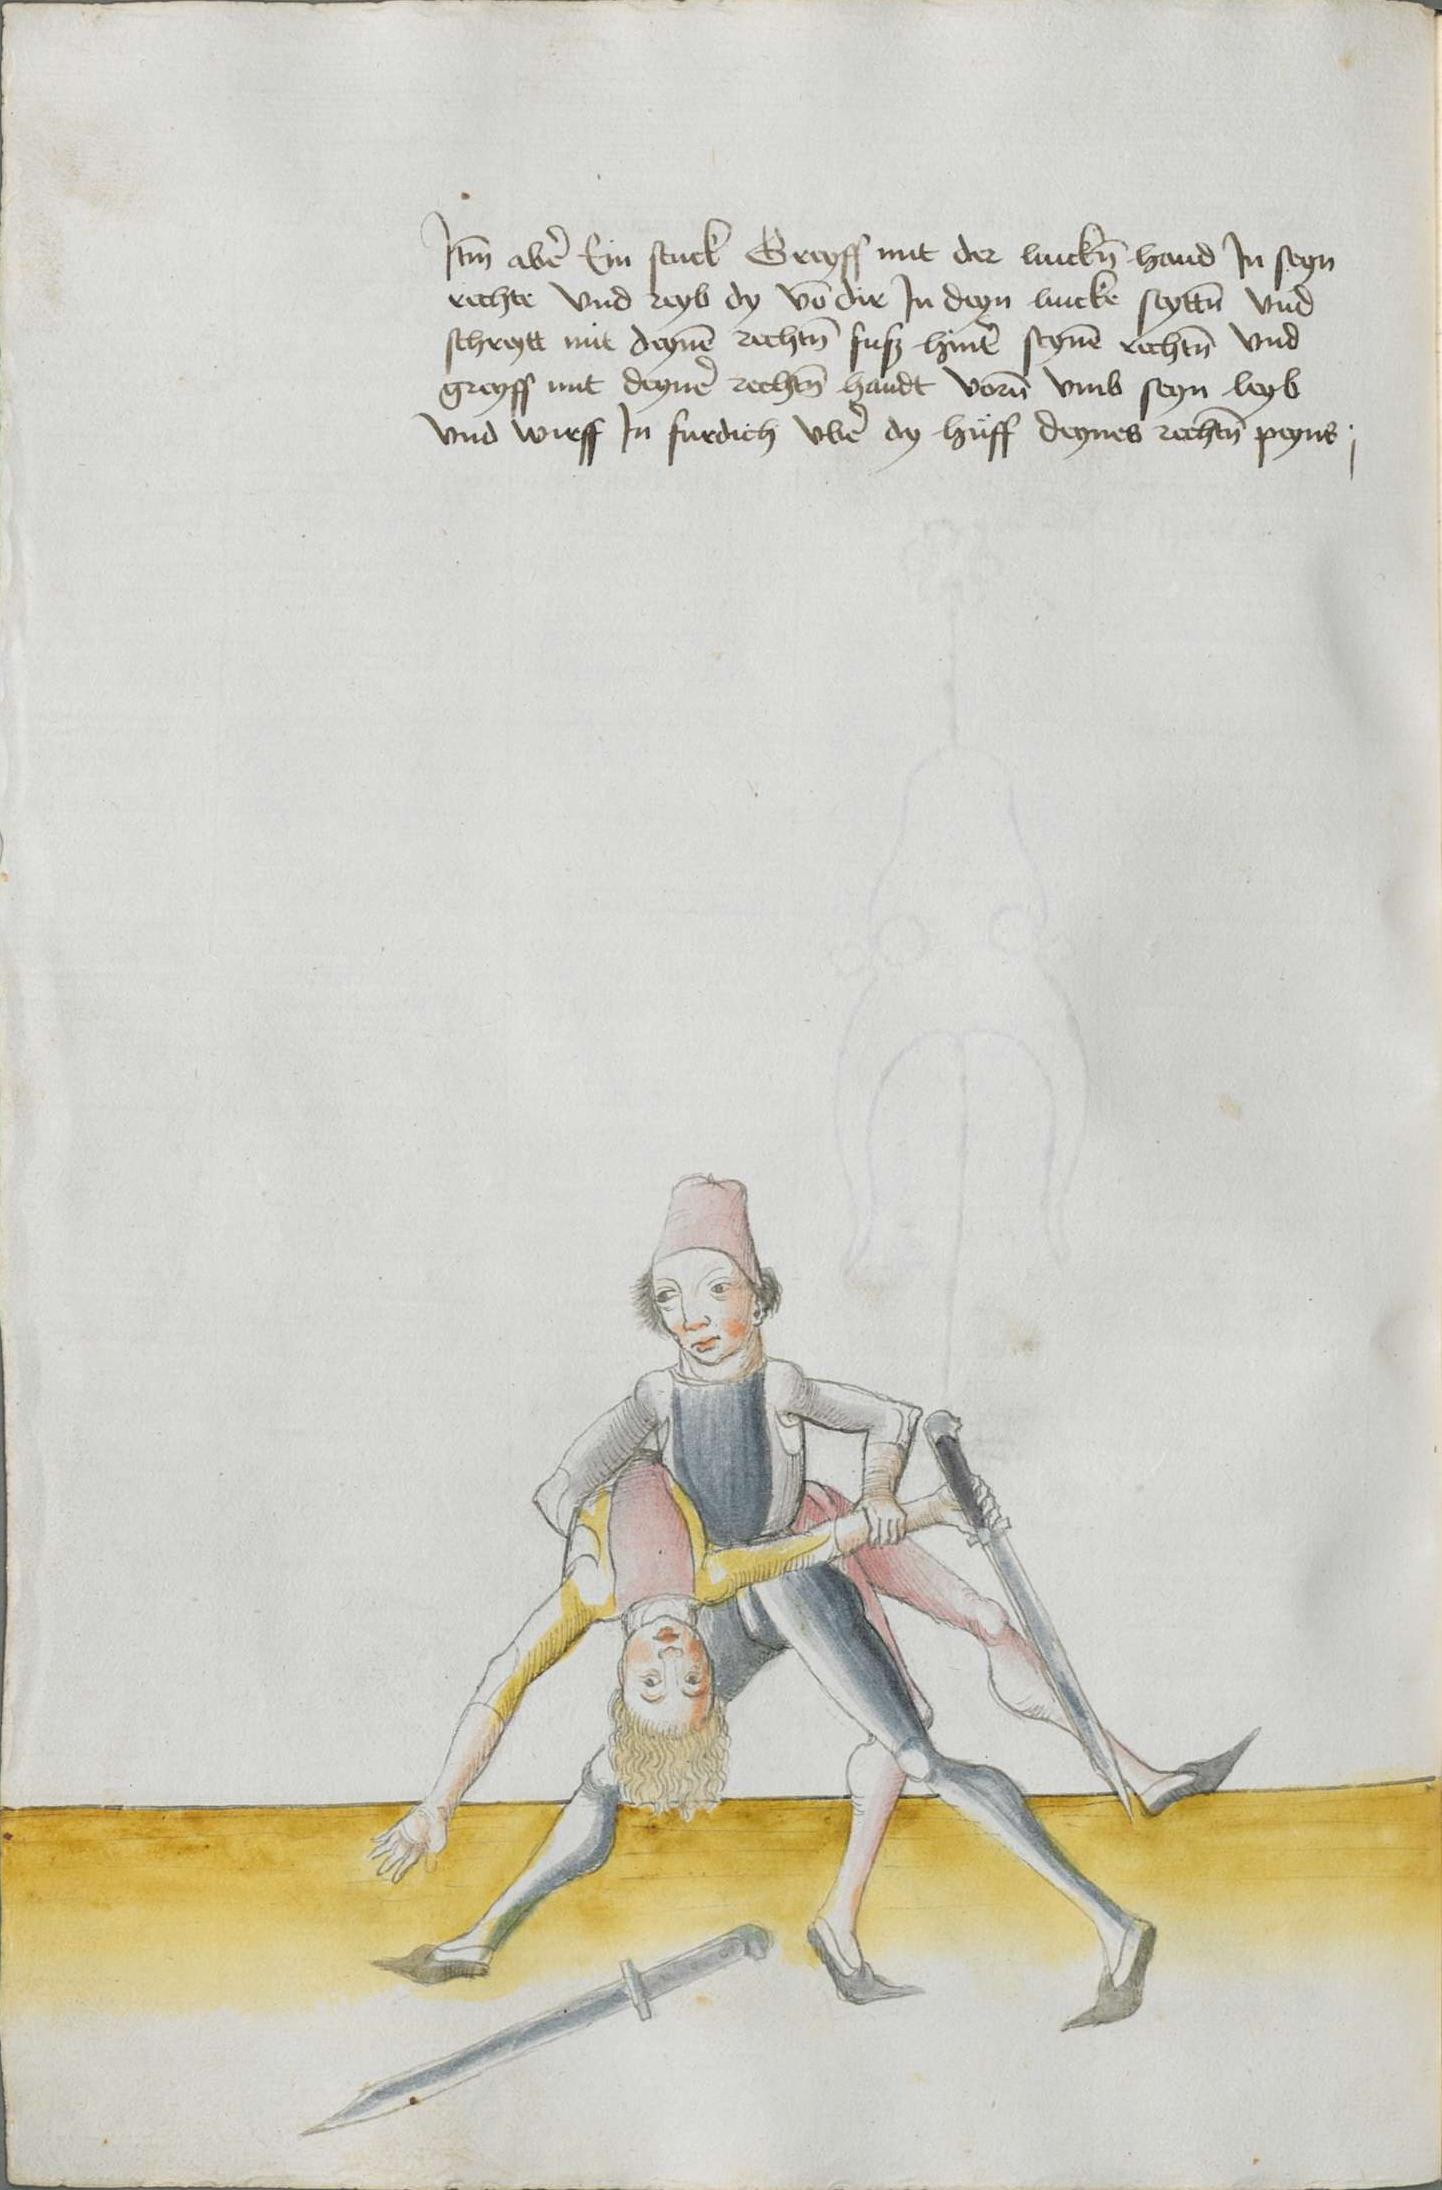 Itm̄ aber Ein stuck Greyff mit der linckn̄ hand In seyn
rechte vnd reyb dy vō dir In deyn lincke seyttn̄ vnd
schreytt mit deynē rechtn̄ fusz hintr̄ seynē rechtn̄ vnd
greyff mit deyner rechtn̄ handt vorn̄ vmb seyn leyb
vnd wirff In fur dich vber dy hüff deynes rechtn̄ peyns